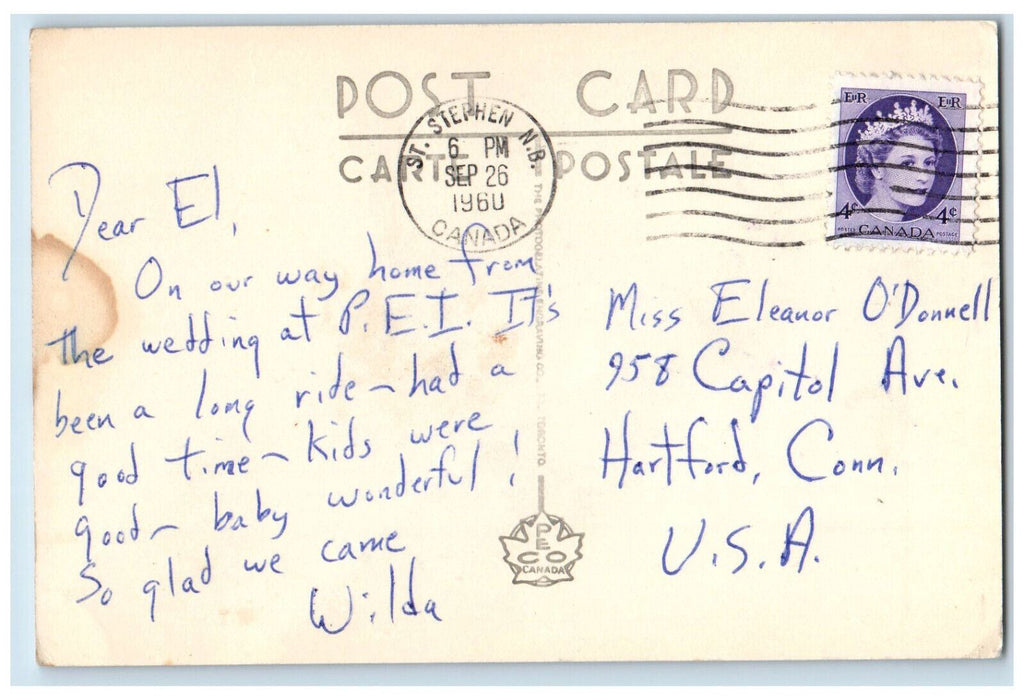 POST CARD
CARTE POSTALE
ST. STEPHEN N.B.
6 PM
SEP 26
1960
CANADA
EIIR EIIR
4¢ 4¢
POSTES CANADA POSTAGE
Dear El,
On our way home from
the wedding at P.E.I. It's
been a long ride – had a
good time – kids were
good – baby wonderful!
So glad we came
Wilda
Miss Eleanor O'Donnell
958 Capitol Ave.
Hartford, Conn.
U.S.A.
THE PHOTOGELATINE ENGRAVING CO. TORONTO
PECO
CANADA